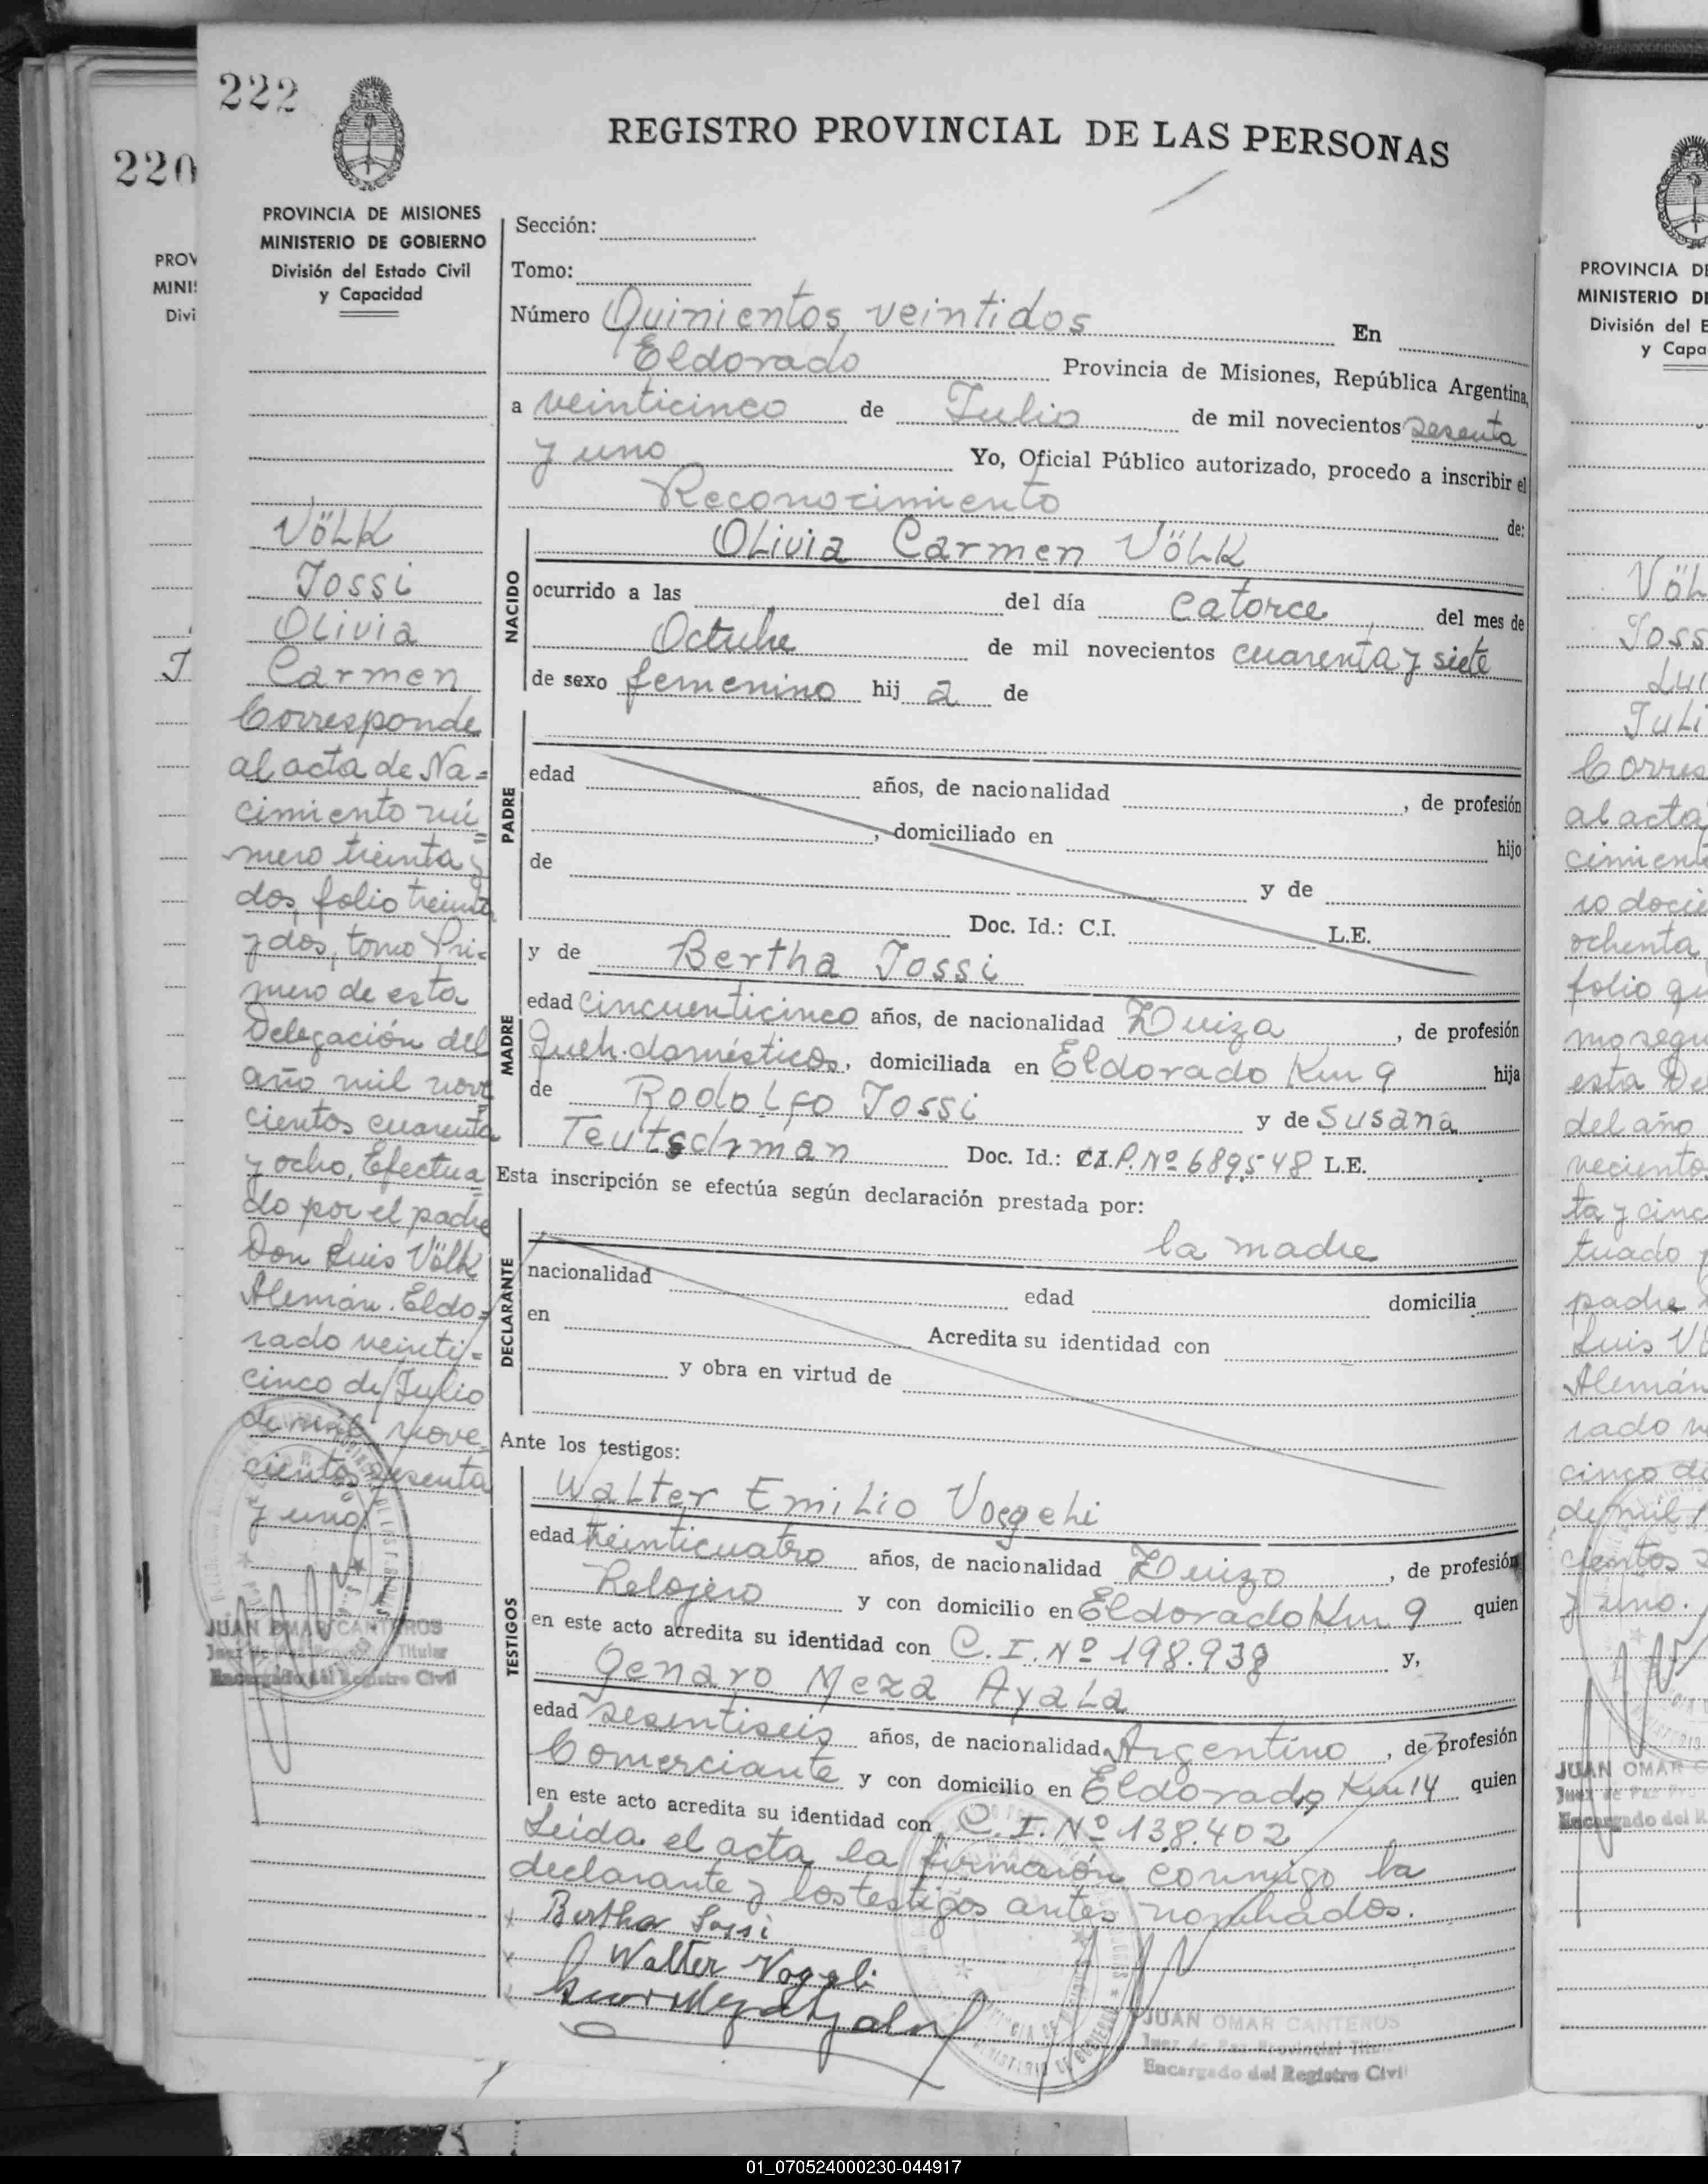 222
REGISTRO PROVINCIAL DE LAS PERSONAS
220
PROVINCIA DE MISIONES
MINISTERIO DE GOBIERNO
División del Estado Civil
y Capacidad
Sección:
Tomo:
Número Quinientos veintidos En
Eldorado Provincia de Misiones, República Argentina,
a veinticinco de Julio de mil novecientos sesenta
y uno Yo, Oficial Público autorizado, procedo a inscribir el
Reconocimiento de:
NACIDO
Olivia Carmen Völk
ocurrido a las del día catorce del mes de
Octubre de mil novecientos cuarenta y siete
de sexo femenino hij a de
PADRE
edad años, de nacionalidad , de profesión
, domiciliado en hijo
de y de
Doc. Id.: C.I. L.E.
MADRE
y de Bertha Jossi
edad cincuenticinco años, de nacionalidad Zuiza , de profesión
Queh. domésticos, domiciliada en Eldorado Km 9 hija
de Rodolfo Jossi y de Susana
Teutschman Doc. Id.: C.I.P. Nº 689548 L.E.
Esta inscripción se efectúa según declaración prestada por:
DECLARANTE
la madre
nacionalidad edad domicilia
en Acredita su identidad con
y obra en virtud de
Ante los testigos:
TESTIGOS
Walter Emilio Voegeli
edad treinticuatro años, de nacionalidad Zuizo , de profesión
Relojero y con domicilio en Eldorado Km 9 quien
en este acto acredita su identidad con C.I. Nº 198.938 y,
Genaro Meza Ayala
edad sesentiseis años, de nacionalidad Argentino , de profesión
Comerciante y con domicilio en Eldorado Km 14 quien
en este acto acredita su identidad con C.I. Nº 138.402
Leida el acta la firmarón conmigo la
declarante y los testigos antes nombrados.
Bertha Jossi
Walter Vögeli
JUAN OMAR CANTEROS
Juez de Paz Provincial Titular
Encargado del Registro Civil
VöLK
Jossi
Olivia
Carmen
Corresponde
al acta de Na=
cimiento nú=
mero treinta y
dos, folio treinta
y dos, tomo Pri=
mero de esta
Delegación del
año mil nove
cientos cuarenta
y ocho, Efectua=
do por el padre
Don Luis Völk
Alemán. Eldo=
rado veinti=
cinco de Julio
de mil nove=
cientos sesenta
y uno.
JUAN OMAR CANTEROS
Juez de Paz Provincial Titular
Encargado del Registro Civil
01_070524000230-044917